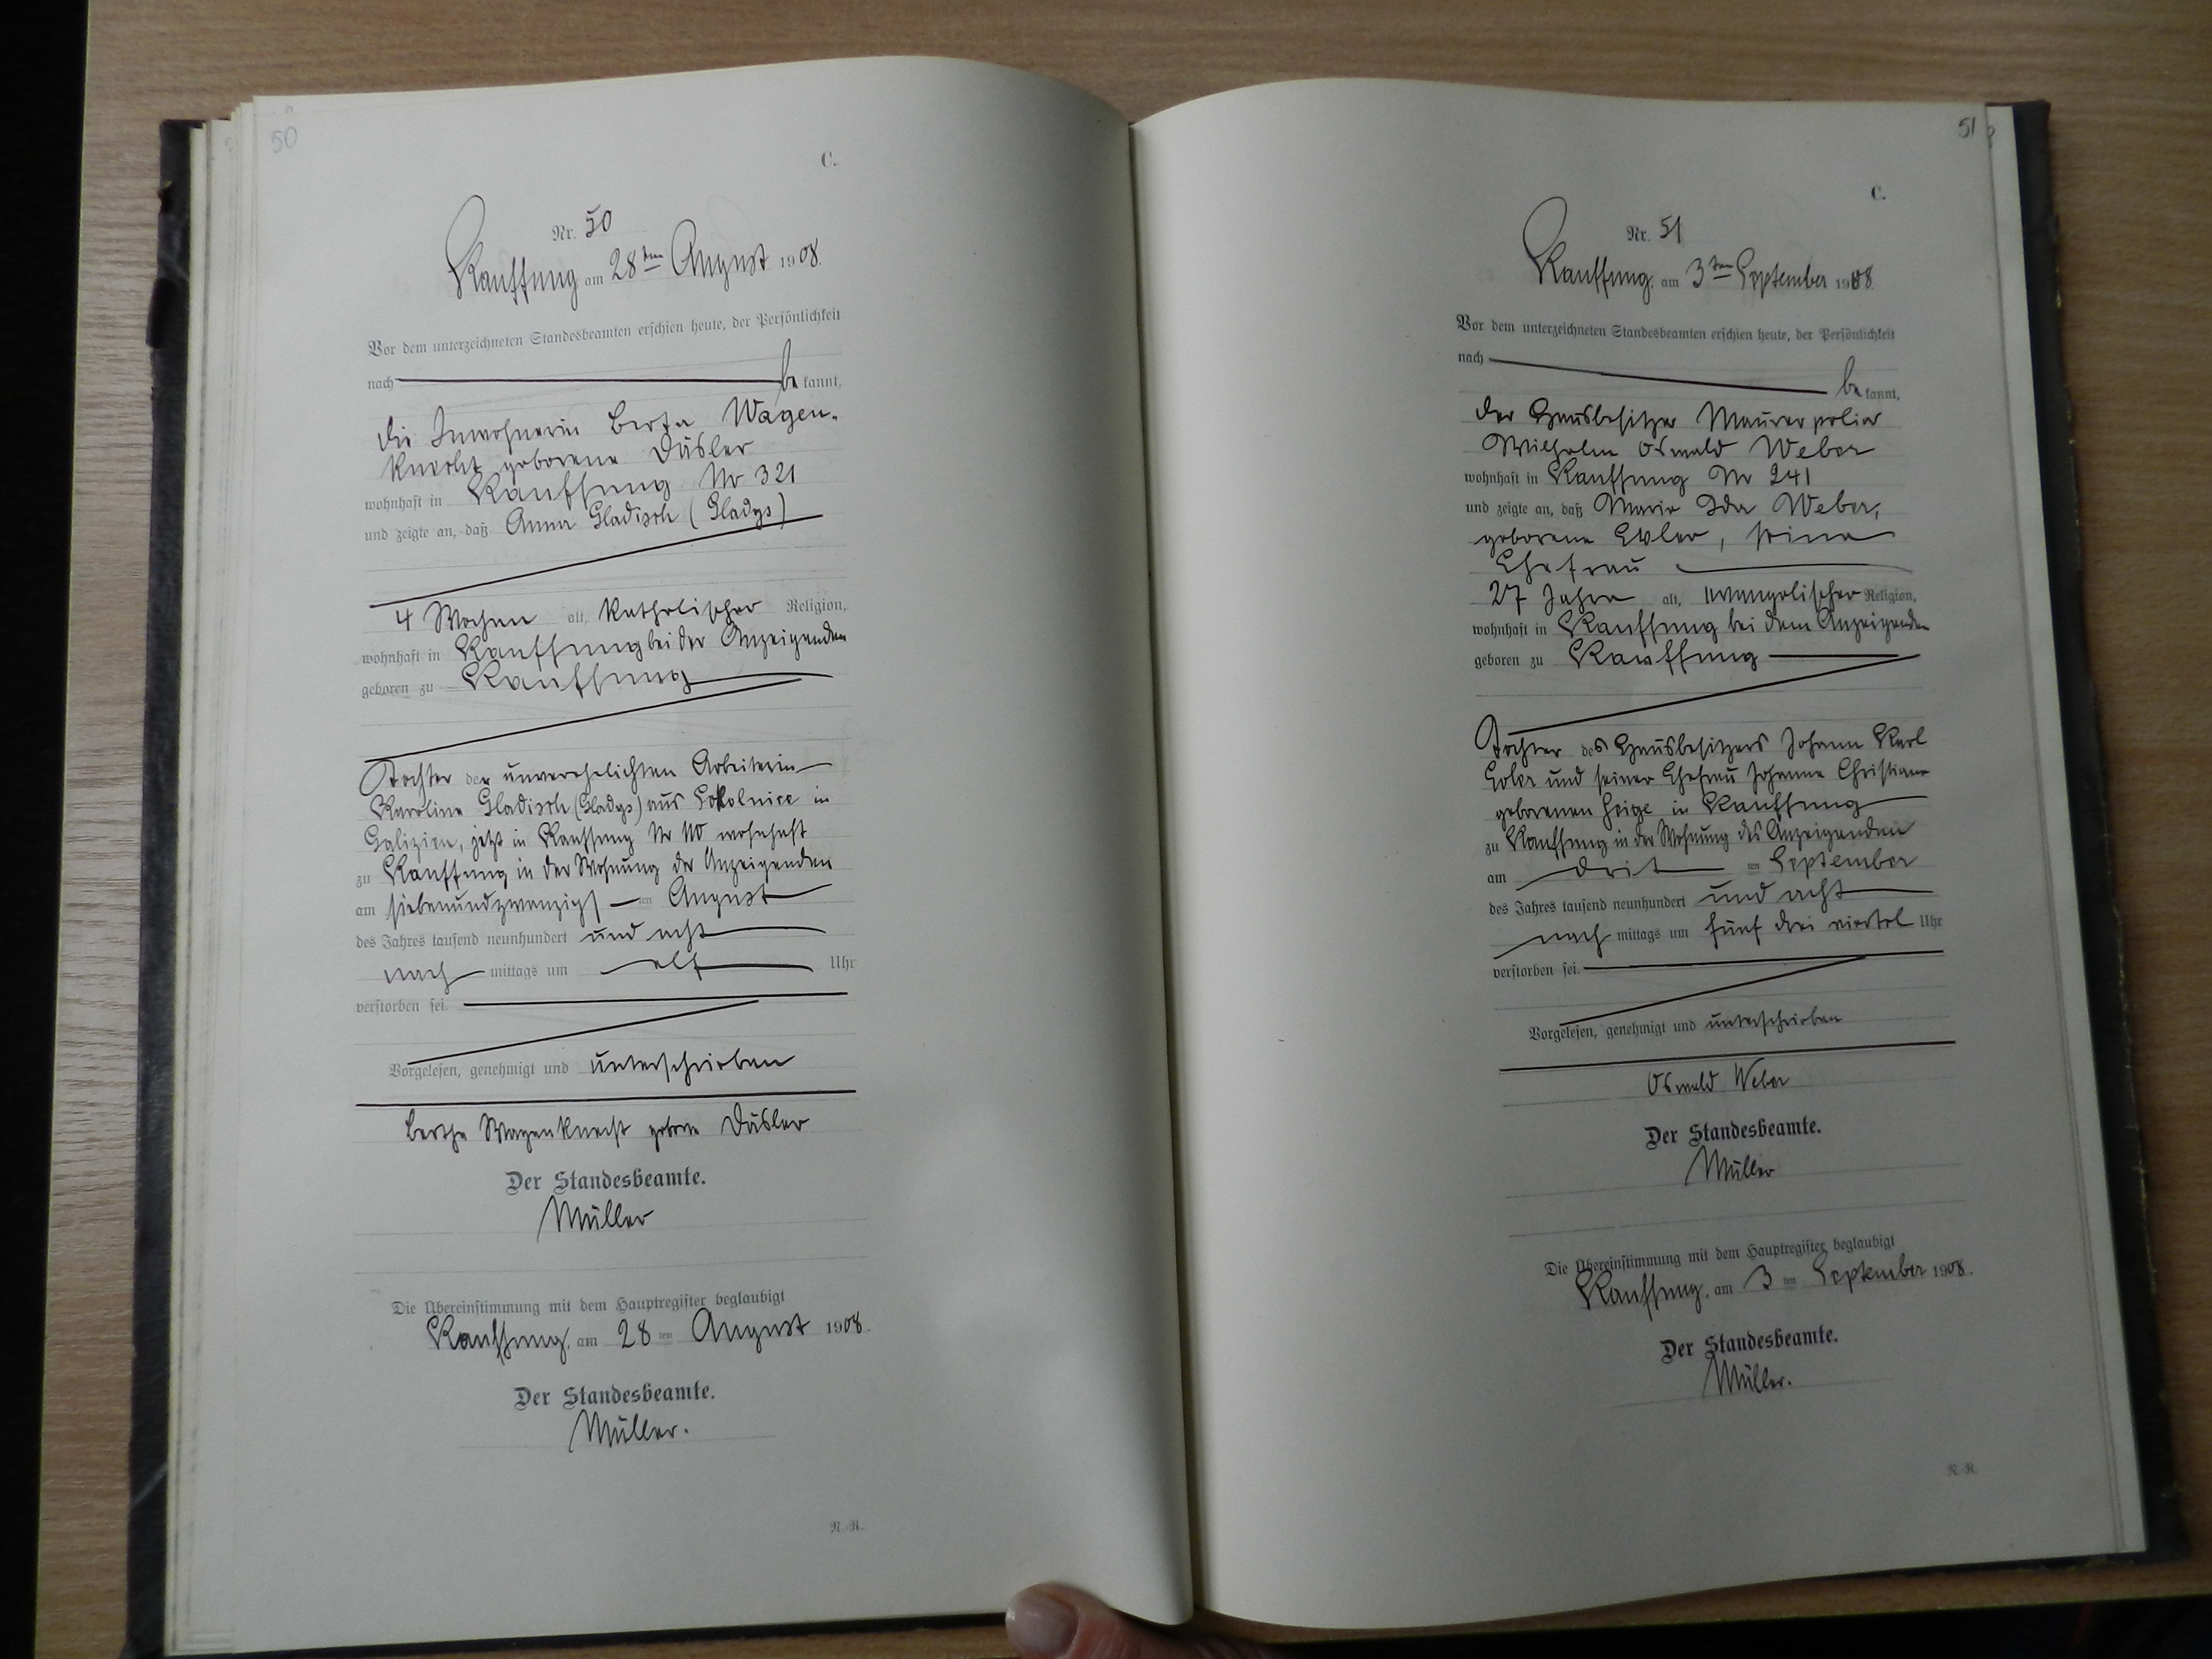 50
C.
Nr. 50
Kauffung am 28ten August 1908.
Vor dem unterzeichneten Standesbeamten erschien heute, der Persönlichkeit
nach be kannt,
die Inwohnerin Berta Wagen-
knecht geborene Däsler
wohnhaft in Kauffung Nr 321
und zeigte an, daß Anna Gladisch (Gladys)
4 Wochen alt, katholischer Religion,
wohnhaft in Kauffung bei der Anzeigenden
geboren zu Kauffung
Tochter der unverehelichten Arbeiterin
Karoline Gladisch (Gladys) aus Sokolnice in
Galizien, jetzt in Kauffung Nr 110 wohnhaft
zu Kauffung in der Wohnung der Anzeigenden
am siebenundzwanzigs ten August
des Jahres tausend neunhundert und acht
nach mittags um elf Uhr
verstorben sei.
Vorgelesen, genehmigt und unterschrieben
Bertha Wagenknecht geborene Däsler
Der Standesbeamte.
Müller
Die Übereinstimmung mit dem Hauptregister beglaubigt
Kauffung, am 28 ten August 1908.
Der Standesbeamte.
Müller.
R.-R.
51
C.
Nr. 51
Kauffung, am 3ten September 1908.
Vor dem unterzeichneten Standesbeamten erschien heute, der Persönlichkeit
nach be kannt,
der Hausbesitzer Maurerpolier
Wilhelm Oswald Weber
wohnhaft in Kauffung Nr 241
und zeigte an, daß Marie Ida Weber,
geborene, seine
Ehefrau
27 Jahre alt, evangelischer Religion,
wohnhaft in Kauffung bei dem Anzeigenden
geboren zu Kauffung
Tochter des Hausbesitzers Johann Karl
und seiner Ehefrau Johanne Christiane
geborenen in Kauffung
zu Kauffung in der Wohnung des Anzeigenden
am drit ten September
des Jahres tausend neunhundert und acht
nach mittags um fünf drei viertel Uhr
verstorben sei.
Vorgelesen, genehmigt und unterschrieben
Oswald Weber
Der Standesbeamte.
Müller
Die Übereinstimmung mit dem Hauptregister beglaubigt
Kauffung, am 3 ten September 1908.
Der Standesbeamte.
Müller.
R.-R.